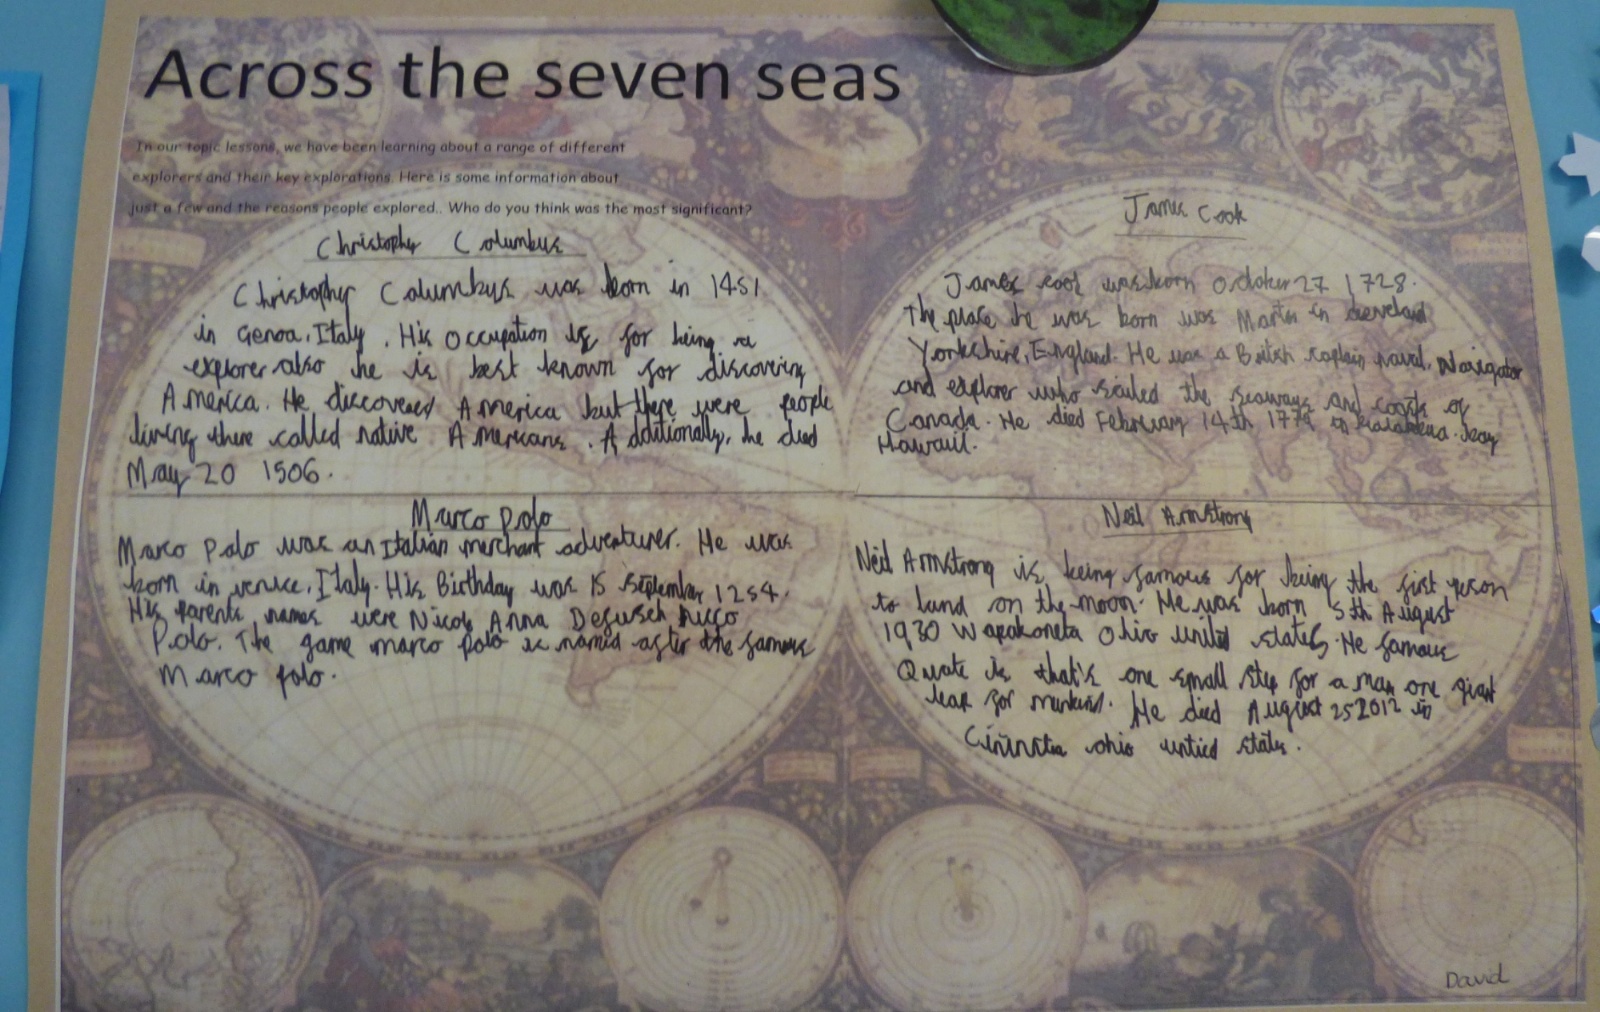 Across the seven seas
In our topic lessons, we have been learning about a range of different
explorers and their key explorations. Here is some information about
just a few and the reasons people explored.. Who do you think was the most significant?
Christopher Columbus
Christopher Columbus was born in 1451
in Genoa, Italy. His occupation is for being a
explorer also he is best known for discovering
America. He discovered America but there were people
living there called native Americans. Additionally, he died
May 20 1506.
James Cook
James cook was born October 27 1728.
The place he was born was Marton in cleveland
Yorkshire, England. He was a British captain naval, Navigator
and explorer who sailed the seaways and coasts of
Canada. He died February 14th 1779
Marco Polo
Marco Polo was an Italian merchant adventurer. He was
born in venice, Italy. His Birthday was 15 september 1254.
His parents names were Nicole Anna
Polo. The game marco polo is named after the famous
Marco polo.
Neil Armstrong
Neil Armstrong is being famous for being the first person
to land on the moon. He was born 5th August
1930 Wapakoneta Ohio united states. He famous
Quate is that's one small step for a man one giant
leap for mankind. He died August 25 2012 in
ohio untied states.
David